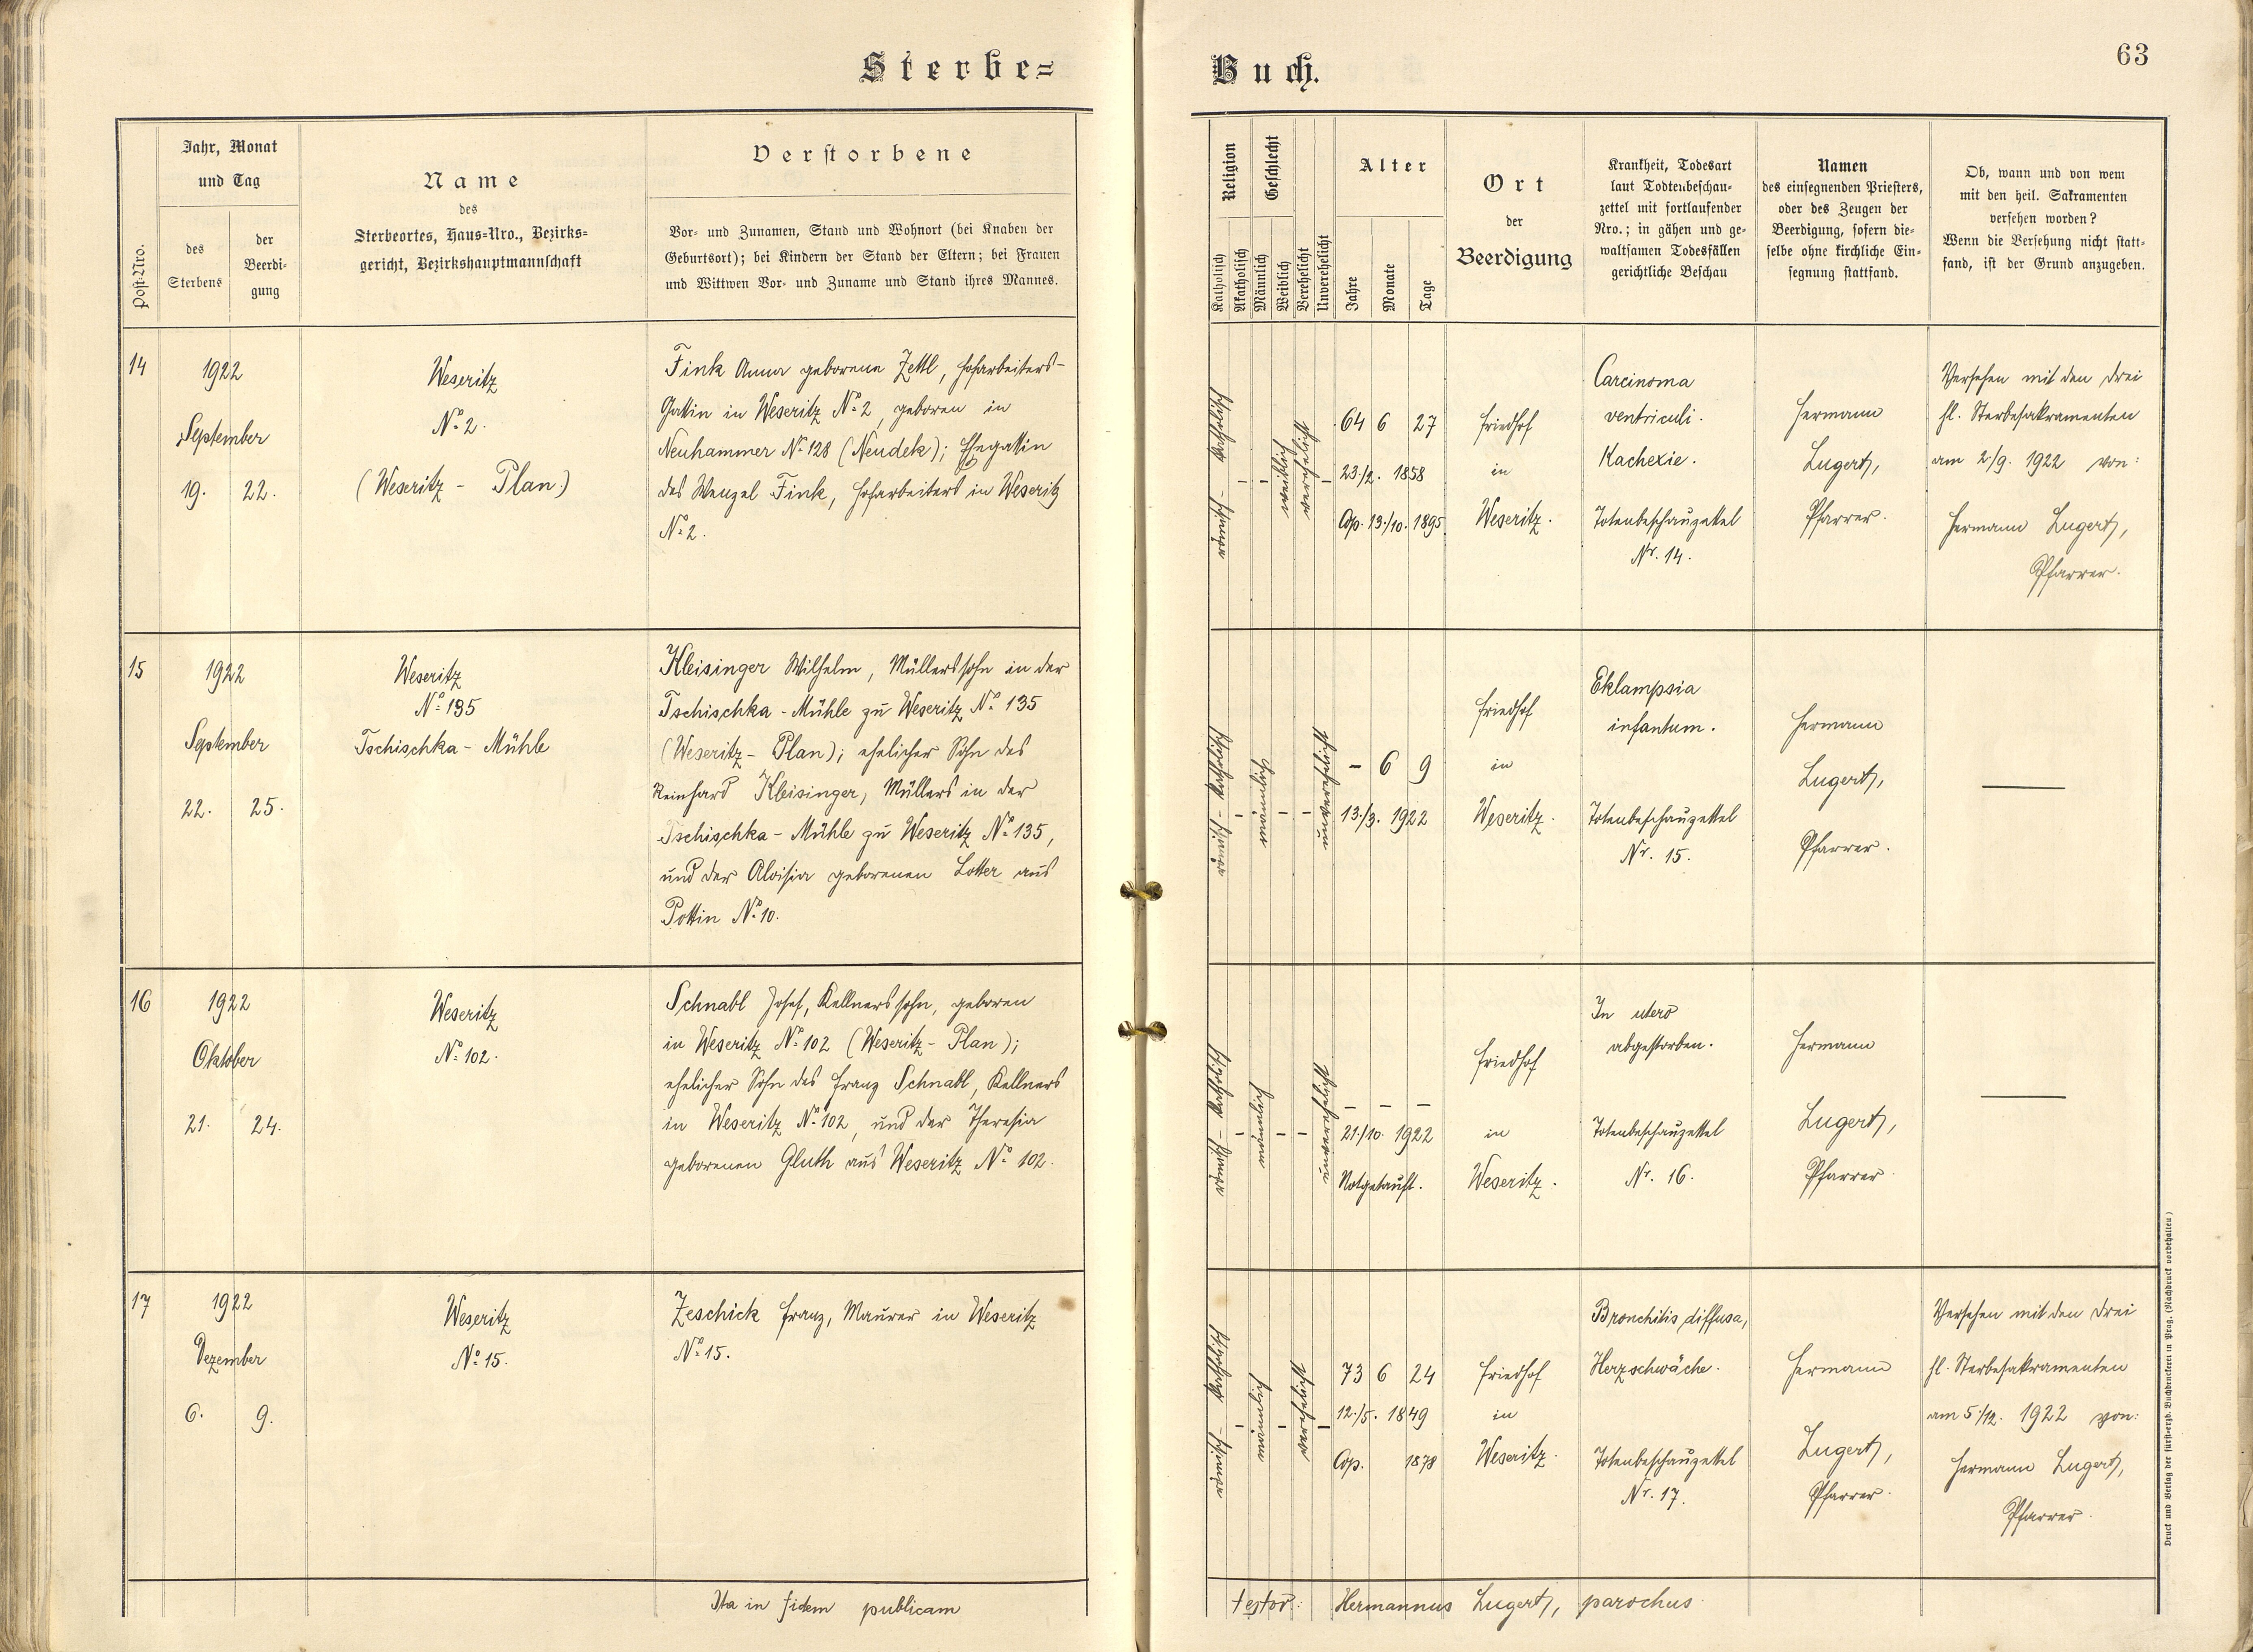 Sterbe=
Buch.
63
Post-Nro.
Jahr, Monat
und Tag
des
Sterbens
der
Beerdi-
gung
Name
des
Sterbeortes, Haus=Nro., Bezirks=
gericht, Bezirkshauptmannschaft
Verstorbene
Vor- und Zunamen, Stand und Wohnort (bei Knaben der
Geburtsort); bei Kindern der Stand der Eltern; bei Frauen
und Wittwen Vor- und Zuname und Stand ihres Mannes.
Religion
Katholisch
Akatholisch
Geschlecht
Männlich
Weiblich
Verehelicht
Unverehelicht
Alter
Jahre
Monate
Tage
Ort
der
Beerdigung
Krankheit, Todesart
laut Todtenbeschau-
zettel mit fortlaufender
Nro.; in gähen und ge-
waltsamen Todesfällen
gerichtliche Beschau
Namen
des einsegnenden Priesters,
oder des Zeugen der
Beerdigung, sofern die-
selbe ohne kirchliche Ein-
segnung stattfand.
Ob, wann und von wem
mit den heil. Sakramenten
versehen worden?
Wenn die Versehung nicht statt-
fand, ist der Grund anzugeben.
14
1922
September
19. 22.
Weseritz
No 2.
(Weseritz - Plan)
Fink Anna geborene Zettl, Hofarbeiters-
Gattin in Weseritz No 2, geboren in
Neuhammer No 128 (Neudek); Ehegattin
des Wenzel Fink, Hofarbeiters in Weseritz
No 2.
katholisch
weiblich
verehelicht
64 6 27
23./2. 1858
Cop. 13./10. 1895
Friedhof
in
Weseritz.
Carcinoma
ventriculi.
Kachexie.
Totenbeschauzettel
Nr. 14.
Hermann
Lugert,
Pfarrer.
Versehen mit den drei
hl. Sterbesakramenten
am 2./9. 1922 von:
Hermann Lugert,
Pfarrer.
15
1922
September
22. 25.
Weseritz
No 135
Tschischka - Mühle
Kleisinger Wilhelm, Müllerssohn in der
Tschischka - Mühle zu Weseritz No 135
(Weseritz - Plan); ehelicher Sohn des
Reinhard Kleisinger, Müllers in der
Tschischka - Mühle zu Weseritz No 135,
und der Aloisia geborenen Lotter aus
Pottin No 10.
katholisch
männlich
unverehelicht
- 6 9
13./3. 1922
Friedhof
in
Weseritz.
Eklampsia
infantum.
Totenbeschauzettel
Nr. 15.
Hermann
Lugert,
Pfarrer.
16
1922
Oktober
21. 24.
Weseritz
No 102.
Schnabl Josef, Kellnerssohn, geboren
in Weseritz No 102 (Weseritz - Plan);
ehelicher Sohn des Franz Schnabl, Kellners
in Weseritz No 102, und der Theresia
geborenen Gluth aus Weseritz No 102.
katholisch
männlich
unverehelicht
- - -
21./10. 1922
Notgetauft.
Friedhof
in
Weseritz.
In utero
abgestorben.
Totenbeschauzettel
Nr. 16.
Hermann
Lugert,
Pfarrer
17
1922
Dezember
6. 9.
Weseritz
No 15.
Zeschick Franz, Maurer in Weseritz
No 15.
katholisch
männlich
verehelicht
73 6 24
12./5. 1849
Cop. 1878
Friedhof
in
Weseritz.
Bronchitis diffusa,
Herzschwäche.
Totenbeschauzettel
Nr. 17.
Hermann
Lugert,
Pfarrer.
Versehen mit den drei
hl. Sterbesakramenten
am 5./12. 1922 von:
Hermann Lugert,
Pfarrer.
Ita in fidem publicam
testor: Hermannus Lugert, parochus.
Druck und Verlag der fürst-erzb. Buchdruckerei in Prag. (Nachdruck vorbehalten)